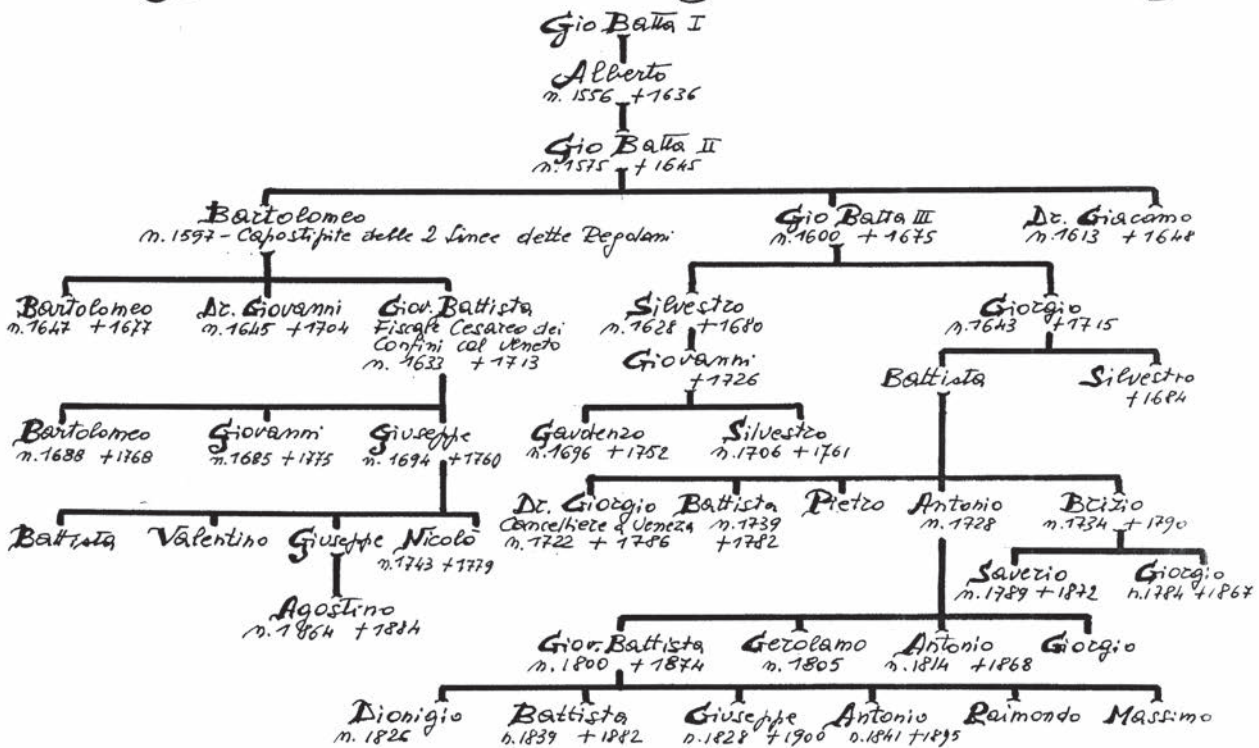 Gio Batta I
Alberto
n. 1556 +1636
Gio Batta II
n. 1575 +1645
Bartolomeo
n. 1597 - Capostipite delle 2 linee dette Regolani
Gio Batta III
n. 1600 +1675
Dr. Giacomo
n. 1613 +1648
Bartolomeo
n. 1647 +1677
Dr. Giovanni
n. 1645 +1704
Giov. Battista
Fiscale Cesareo dei
Confini col Veneto
n. 1633 +1713
Silvestro
n. 1628 +1680
Giorgio
n. 1643 +1715
Giovanni
+1726
Battista
Silvestro
+1684
Bartolomeo
n. 1688 +1768
Giovanni
n. 1685 +1775
Giuseppe
n. 1694 +1760
Gaudenzo
n. 1696 +1752
Silvestro
n. 1706 +1761
Battista
Valentino
Giuseppe
Nicolò
n. 1743 +1779
Dr. Giorgio
Cancelliere a Veneza
n. 1722 +1786
Battista
n. 1739
+1782
Pietro
Antonio
n. 1728
Brizio
n. 1734 +1790
Agostino
n. 1864 +1884
Saverio
n. 1789 +1872
Giorgio
n. 1784 +1867
Giov. Battista
n. 1800 +1874
Gerolamo
n. 1805
Antonio
n. 1814 +1868
Giorgio
Dionigio
n. 1826
Battista
n. 1839 +1882
Giuseppe
n. 1828 +1900
Antonio
n. 1841 +1895
Raimondo
Massimo